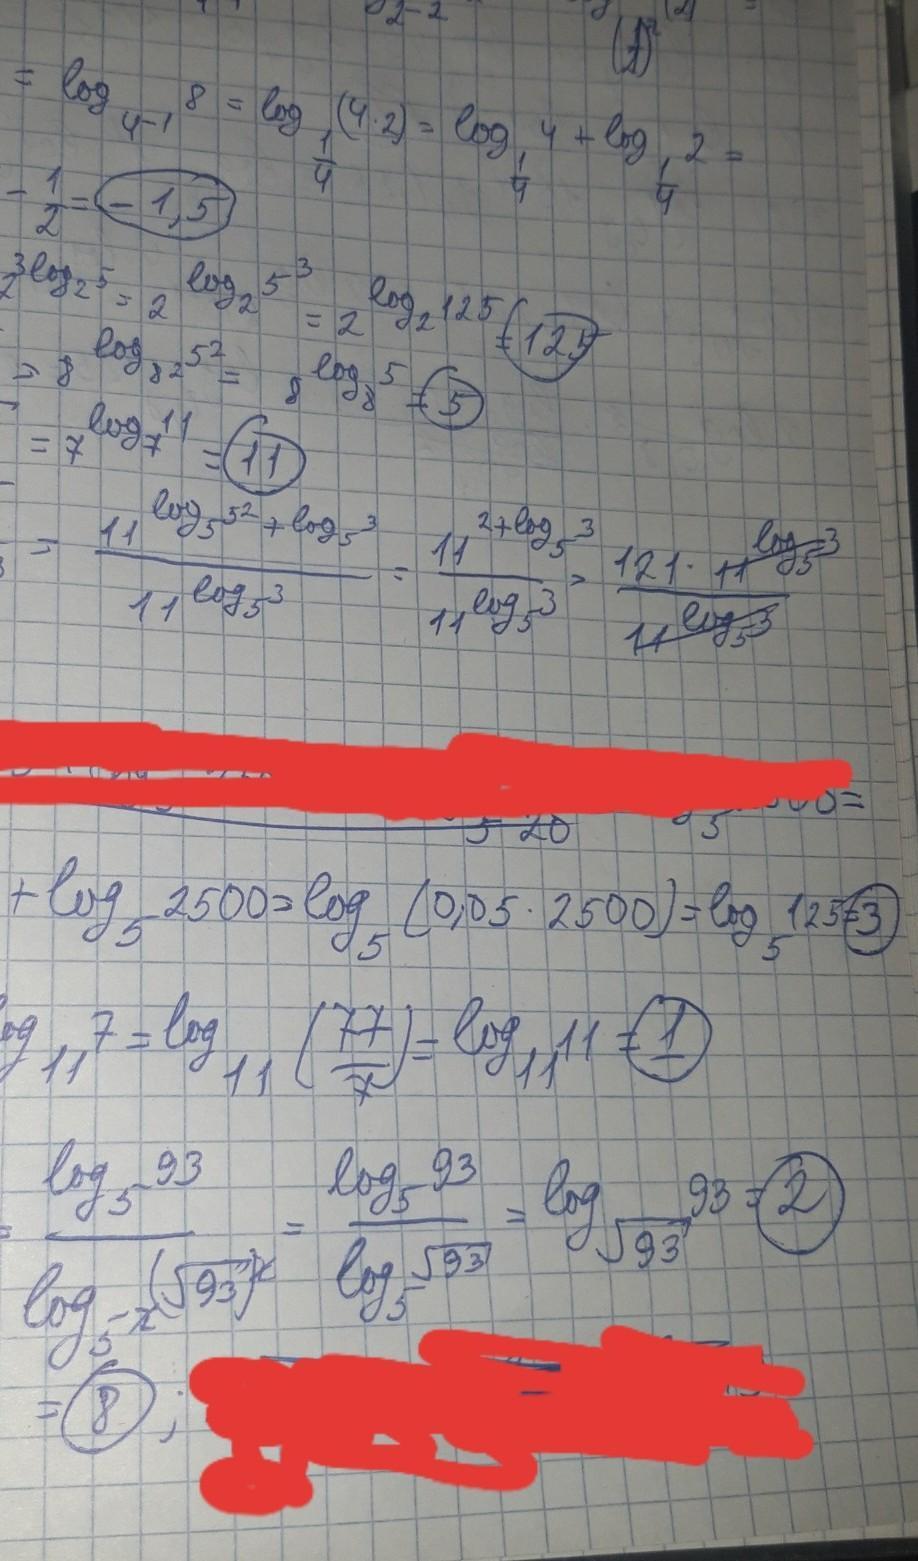 = log_{4^{-1}} 8 = log_{1/4} (4·2) = log_{1/4} 4 + log_{1/4} 2 =
- 1/2 = -1,5
2^{3log_2 5} = 2^{log_2 5^3} = 2^{log_2 125} = 125
= 8^{log_{8^2} 5^2} = 8^{log_8 5} = 5
= 7^{log_7 11} = 11
= 11^{log_5 5^2 + log_5 3} / 11^{log_5 3} = 11^{2+log_5 3} / 11^{log_5 3} = 121·11^{log_5 3} / 11^{log_5 3}
+ log_5 2500 = log_5 (0,05·2500) = log_5 125 = 3
log_{11} 7 = log_{11} (77/7) = log_{11} 11 = 1
= log_5 93 / log_{5^x} (√93)^x = log_5 93 / log_5 √93 = log_{√93} 93 = 2
= 8 ;